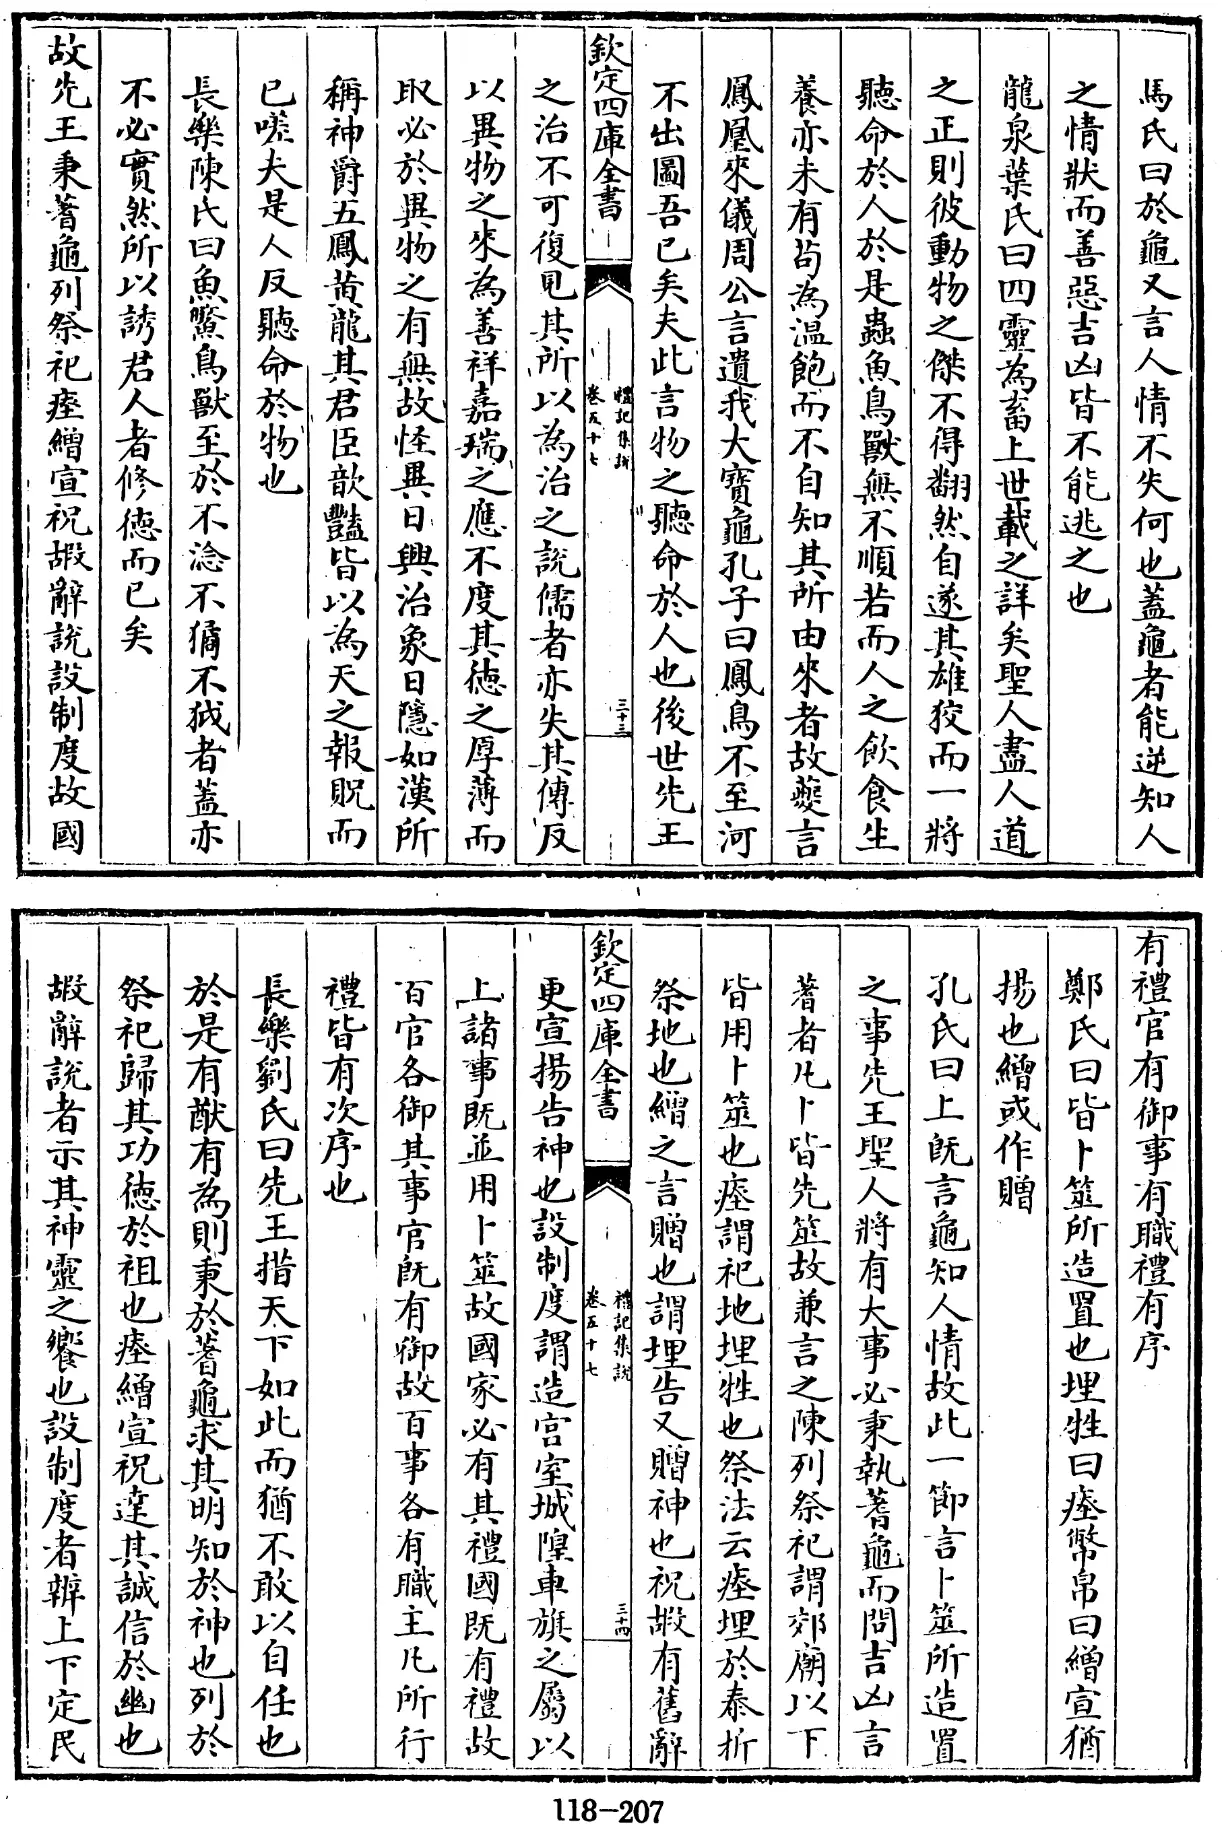 馬氏曰於龜又言人情不失何也蓋龜者能逆知人
之情狀而善惡吉凶皆不能逃之也
龍泉葉氏曰四靈為畜上世載之詳矣聖人盡人道
之正則彼動物之傑不得翻然自遂其雄狡而一將
聽命於人於是蟲魚鳥獸無不順若而人之飲食生
養亦未有苟為温飽而不自知其所由來者故夔言
鳳凰來儀周公言遺我大寶龜孔子曰鳳鳥不至河
不出圖吾已矣夫此言物之聽命於人也後世先王
欽定四庫全書
禮記集說
卷五十七
三十三
之治不可復見其所以為治之說儒者亦失其傳反
以異物之來為善祥嘉瑞之應不度其德之厚薄而
取必於異物之有無故怪異日興治象日隱如漢所
稱神爵五鳳黄龍其君臣歆豔皆以為天之報貺而
已嗟夫是人反聽命於物也
長樂陳氏曰魚鱉鳥獸至於不淰不獝不狘者蓋亦
不必實然所以誘君人者修德而已矣
故先王秉蓍龜列祭祀瘞繒宣祝嘏辭說設制度故國
有禮官有御事有職禮有序
鄭氏曰皆卜筮所造置也埋牲曰瘞幣帛曰繒宣猶
揚也繒或作贈
孔氏曰上既言龜知人情故此一節言卜筮所造置
之事先王聖人將有大事必秉執蓍龜而問吉凶言
蓍者凡卜皆先筮故兼言之陳列祭祀謂郊廟以下
皆用卜筮也瘞謂祀地埋牲也祭法云瘞埋於泰折
祭地也繒之言贈也謂埋告又贈神也祝嘏有舊辭
欽定四庫全書
禮記集說
卷五十七
三十四
更宣揚告神也設制度謂造宫室城隍車旗之屬以
上諸事既並用卜筮故國家必有其禮國既有禮故
百官各御其事官既有御故百事各有職主凡所行
禮皆有次序也
長樂劉氏曰先王措天下如此而猶不敢以自任也
於是有猷有為則秉於蓍龜求其明知於神也列於
祭祀歸其功德於祖也瘞繒宣祝達其誠信於幽也
嘏辭說者示其神靈之饗也設制度者辨上下定民
118-207